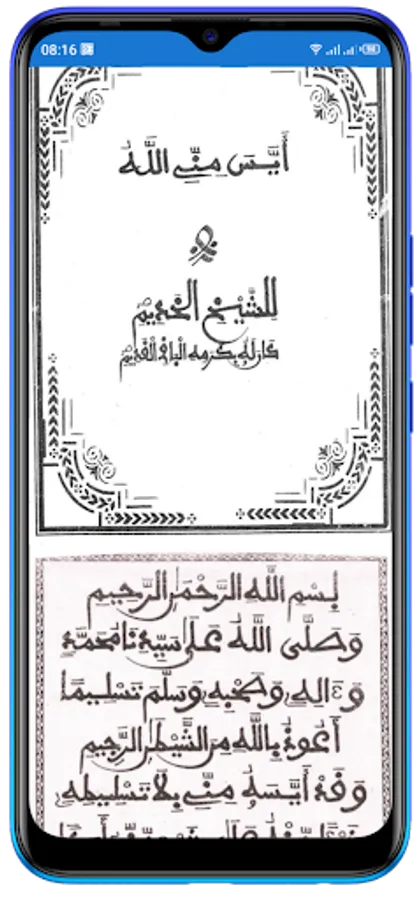 08:16
أَيَّسَ مِنِّي اللَّهُ
لِلشَّيْخِ الْخَدِيمِ
كَانَ لَهُ بِكَرَمِهِ الْبَاقِ الْقَدِيمِ
بِسْمِ اللَّهِ الرَّحْمَٰنِ الرَّحِيمِ
وَصَلَّى اللَّهُ عَلَى سَيِّدِنَا مُحَمَّدٍ
وَءَالِهِ وَصَحْبِهِ وَسَلَّمَ تَسْلِيمًا
أَعُوذُ بِاللَّهِ مِنَ الشَّيْطَٰنِ الرَّجِيمِ
وَقَدْ أَيَّسَهُ مِنِّي بِلَا تَسْلِيطِهِ